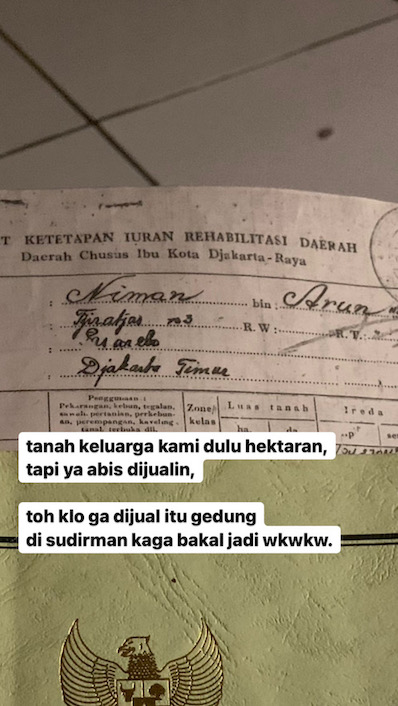 T KETETAPAN IURAN REHABILITASI DAERAH
Daerah Chusus Ibu Kota Djakarta-Raya
: Niman bin : Arun
: Tjiratjas no 3 R. W : R. T.
:
: Djakarta Timur
Penggunaan :
Pekarangan, kebun, tegalan,
sawah, pertanian, perkebun-
an, perempangan, kaveling
tanah terbuka dll.
Zone/
kelas
Luas tanah
ha. da.
Ireda
tanah keluarga kami dulu hektaran,
tapi ya abis dijualin,
toh klo ga dijual itu gedung
di sudirman kaga bakal jadi wkwkw.